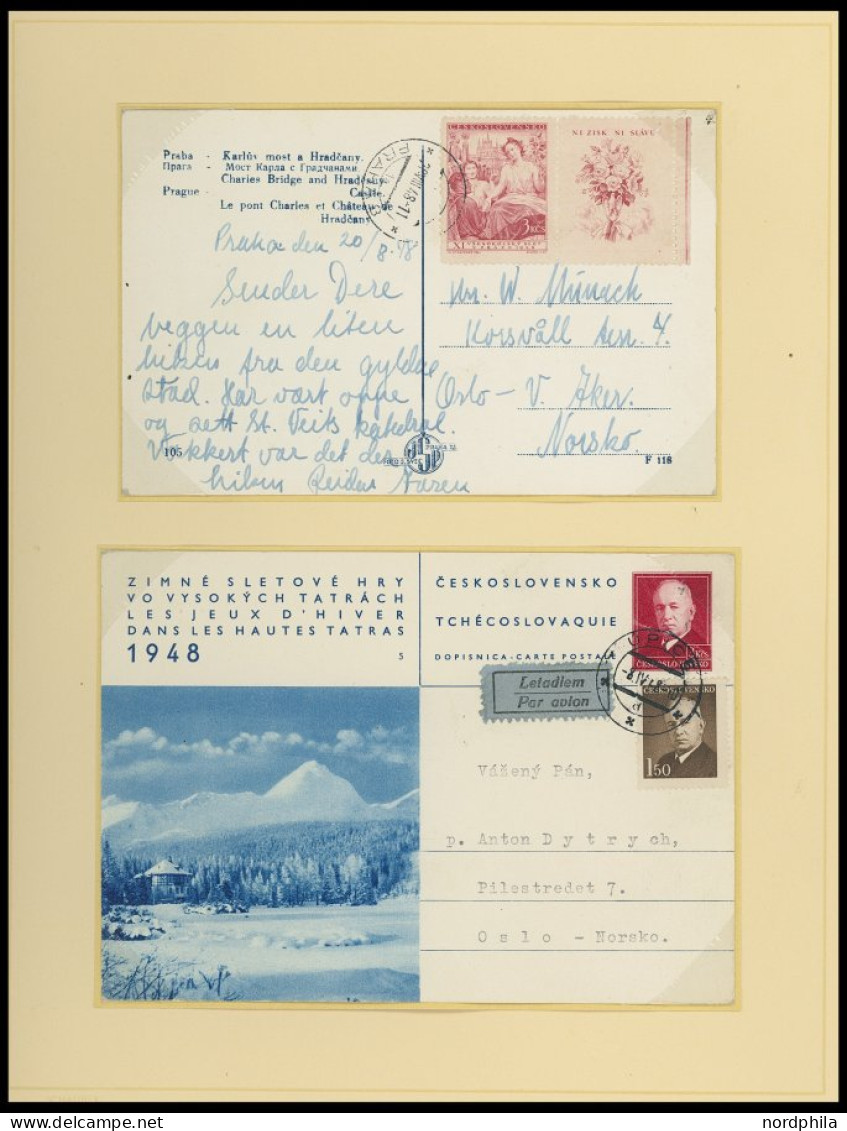 Praha - Karlův most a Hradčany.
Прага - Мост Карла с Градчанами.
Charles Bridge and Hradčany
Prague - Castle.
Le pont Charles et Château de
Hradčany
ČESKOSLOVENSKO
3 KČS
NI ZISK NI SLÁVU
Praha den 20/8.48
Sender Dere
veggen en liten
hilsen fra den gyldne
stad. Har vært oppe
og sett St. Veits katedral.
Vakkert var det der
hilsen Reidar
W. Münach
Oslo - V. Aker.
Norsko.
105
PRAHA 12
F 118
ZIMNÉ SLETOVÉ HRY
VO VYSOKÝCH TATRÁCH
LES JEUX D'HIVER
DANS LES HAUTES TATRAS
1948
5
ČESKOSLOVENSKO
TCHÉCOSLOVAQUIE
DOPISNICA - CARTE POSTALE
ČESKOSLOVENSKO
Letadlem
Par avion
ČESKOSLOVENSKO
150
Vážený Pán,
p. Anton Dytrych,
Pilestredet 7.
Oslo - Norsko.
www.nordphila.de